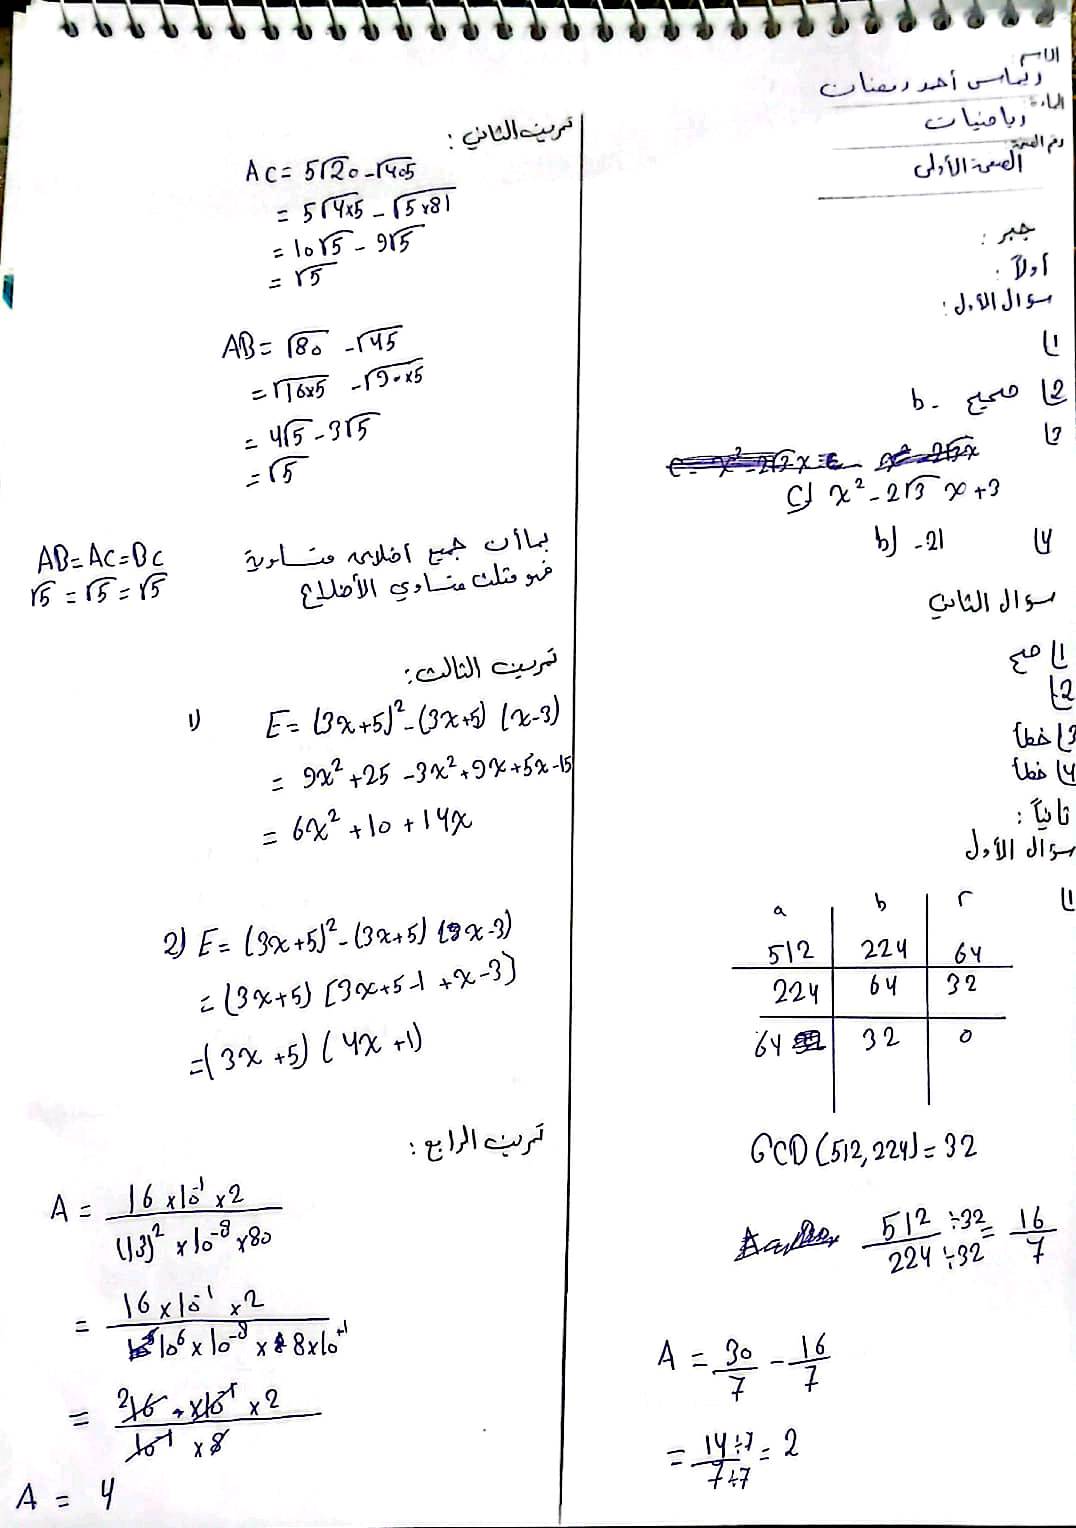 الاسم
ريماس أحمد رمضان
المادة
رياضيات
رقم الصفحة
الصفحة الأولى
جبر :
أولاً :
سؤال الأول :
1)
2) صحيح b.
3)
c) x² - 2√3 x + 3
4) b) -21
سؤال الثاني
1) صح
2)
3) خطأ
4) خطأ
ثانياً :
سؤال الأول
1)
a b r
512 224 64
224 64 32
64 32 0
GCD (512, 224) = 32
512 ÷32 / 224 ÷32 = 16/7
A = 30/7 - 16/7
= 14÷7 / 7÷7 = 2
تمرين الثاني :
AC = 5√20 - √405
= 5√4×5 - √5×81
= 10√5 - 9√5
= √5
AB = √80 - √45
= √16×5 - √9×5
= 4√5 - 3√5
= √5
بما أن جميع أضلاعه متساوية AB = AC = BC
فهو مثلث متساوي الأضلاع √5 = √5 = √5
تمرين الثالث :
1) E = (3x+5)² - (3x+5) (x-3)
= 9x² + 25 - 3x² + 9x + 5x - 15
= 6x² + 10 + 14x
2) E = (3x+5)² - (3x+5) (x-3)
= (3x+5) [3x+5-1 + x-3)
= (3x+5) (4x+1)
تمرين الرابع :
A = 16 × 10⁻¹ × 2 / × 10⁻⁸ × 80
= 16 × 10⁻¹ × 2 / 10⁶ × 10⁻⁸ × 8×10⁺¹
= 2 16 × 10⁻¹ × 2 / 10⁻¹ × 8
A = 4